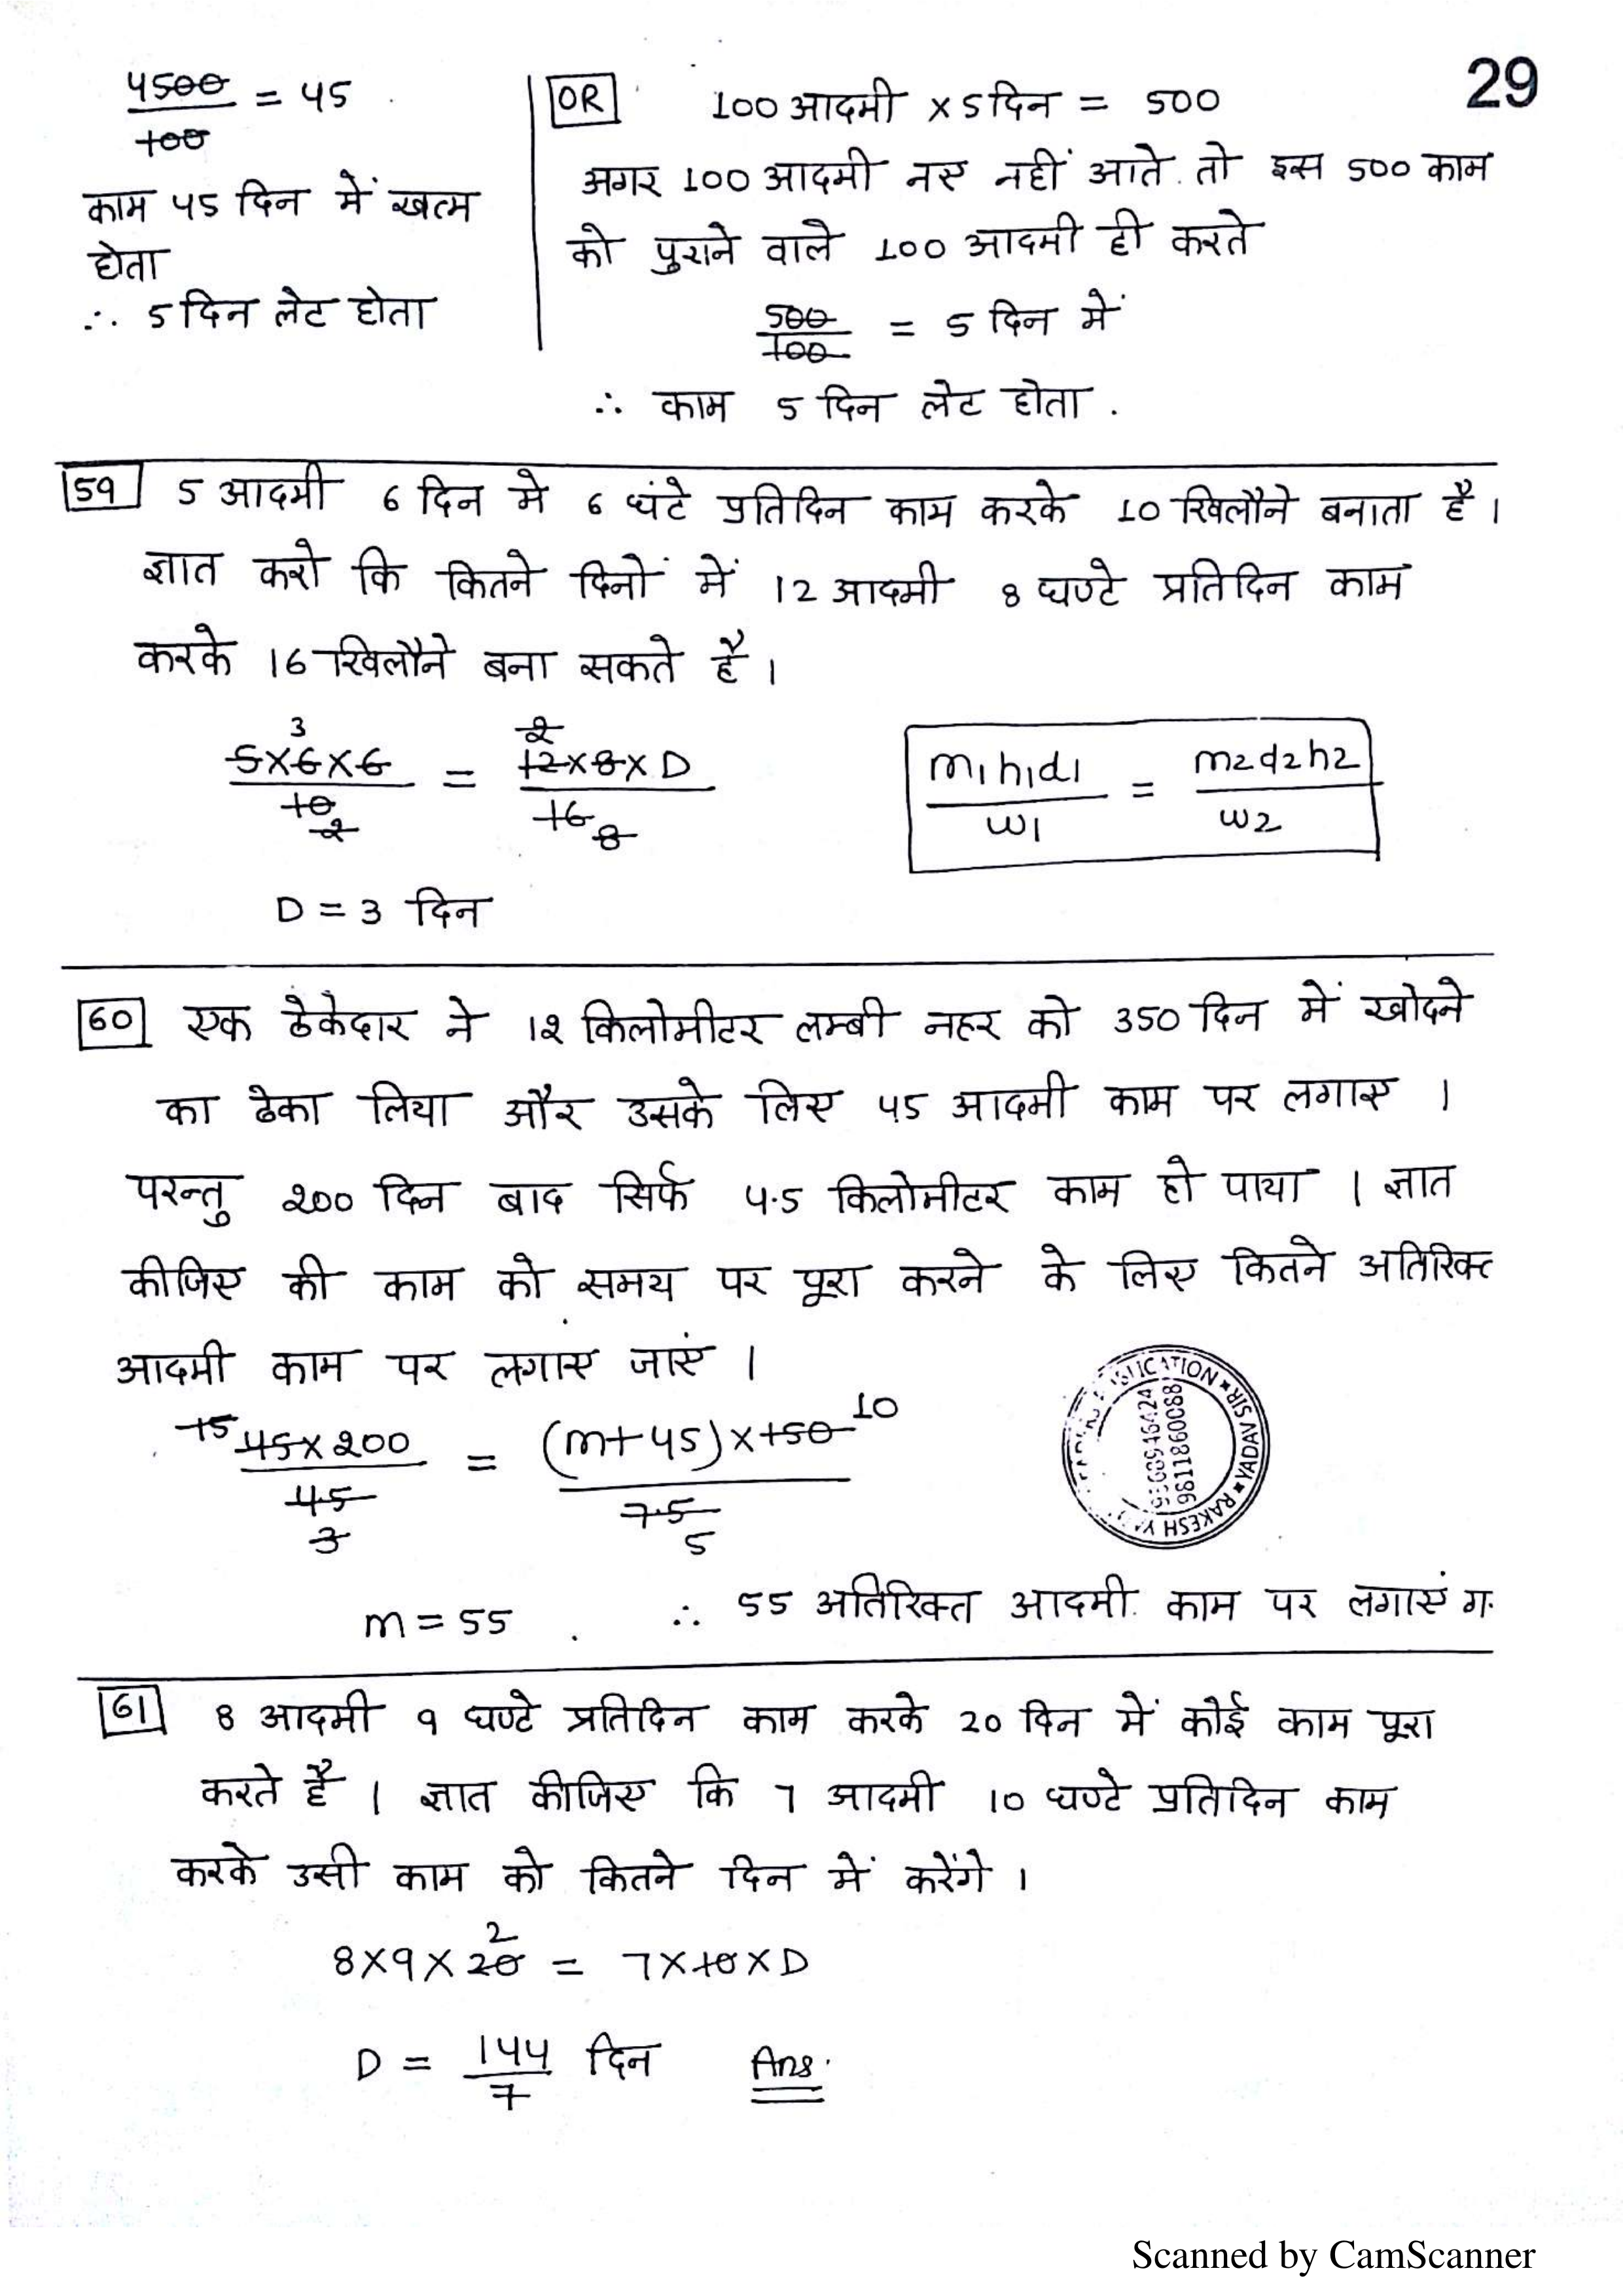 29
4500/100 = 45
काम 45 दिन में खत्म
होता
∴ 5 दिन लेट होता
OR 100 आदमी × 5 दिन = 500
अगर 100 आदमी नए नहीं आते तो इस 500 काम
को पुराने वाले 100 आदमी ही करते
500/100 = 5 दिन में
∴ काम 5 दिन लेट होता .
59 5 आदमी 6 दिन मे 6 घंटे प्रतिदिन काम करके 10 खिलौने बनाता है ।
ज्ञात करो कि कितने दिनों में 12 आदमी 8 घण्टे प्रतिदिन काम
करके 16 खिलौने बना सकते है ।
3 2
5×6×6/10 = 12×8×D/16
2 8
m1h1d1/w1 = m2d2h2/w2
D = 3 दिन
60 एक ठेकेदार ने 12 किलोमीटर लम्बी नहर को 350 दिन में खोदने
का ठेका लिया और उसके लिए 45 आदमी काम पर लगाए ।
परन्तु 200 दिन बाद सिर्फ 4.5 किलोमीटर काम हो पाया । ज्ञात
कीजिए की काम को समय पर पूरा करने के लिए कितने अतिरिक्त
आदमी काम पर लगाए जाएं ।
15 45×200/4.5 = (m+45)×150/7.5 10
3 5
RAKESH YADAV SIR
9811860088
m = 55 . ∴ 55 अतिरिक्त आदमी काम पर लगाएं
61 8 आदमी 9 घण्टे प्रतिदिन काम करके 20 दिन में कोई काम पूरा
करते है । ज्ञात कीजिए कि 7 आदमी 10 घण्टे प्रतिदिन काम
करके उसी काम को कितने दिन में करेंगे ।
2
8×9×20 = 7×10×D
D = 144/7 दिन Ans.
Scanned by CamScanner